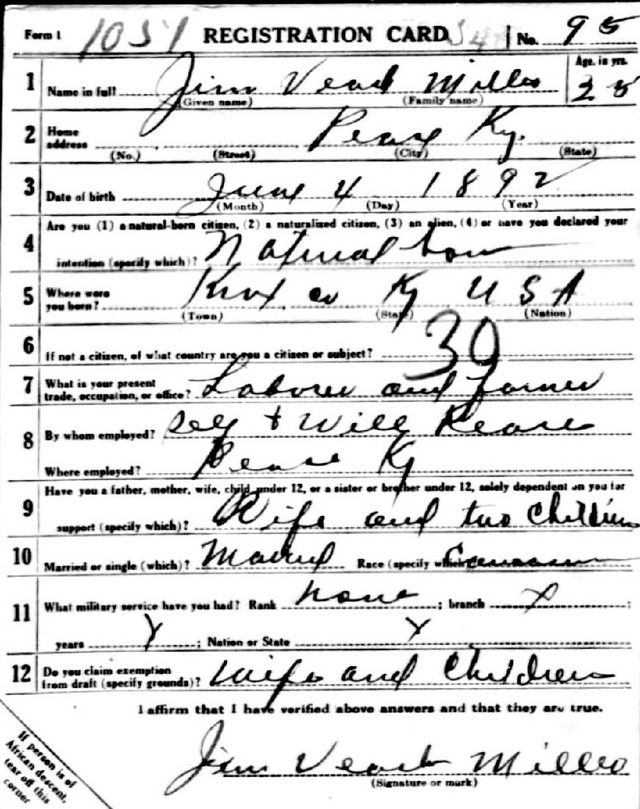 Form 1 1051 REGISTRATION CARD No. 95
1 Name in full Jim Miller Age, in yrs. 25
(Given name) (Family name)
2 Home address Ky.
(No.) (Street) (City) (State)
3 Date of birth June 4 1892
(Month) (Day) (Year)
Are you (1) a natural-born citizen, (2) a naturalized citizen, (3) an alien, (4) or have you declared your
4 intention (specify which)? Natural born
5 Where were you born? Knox co Ky U S A
(Town) (State) (Nation)
6 If not a citizen, of what country are you a citizen or subject? 30
7 What is your present trade, occupation, or office? Laborer and farmer
8 By whom employed? Self + Will
Where employed? Ky
Have you a father, mother, wife, child under 12, or a sister or brother under 12, solely dependent on you for
9 support (specify which)? Wife and two Children
10 Married or single (which)? Married Race (specify which)? Caucasian
11 What military service have you had? Rank None ; branch X ;
years X ; Nation or State X
12 Do you claim exemption from draft (specify grounds)? Wife and Children
I affirm that I have verified above answers and that they are true.
Jim Miller
(Signature or mark)
If person is of
African descent,
tear off this
corner